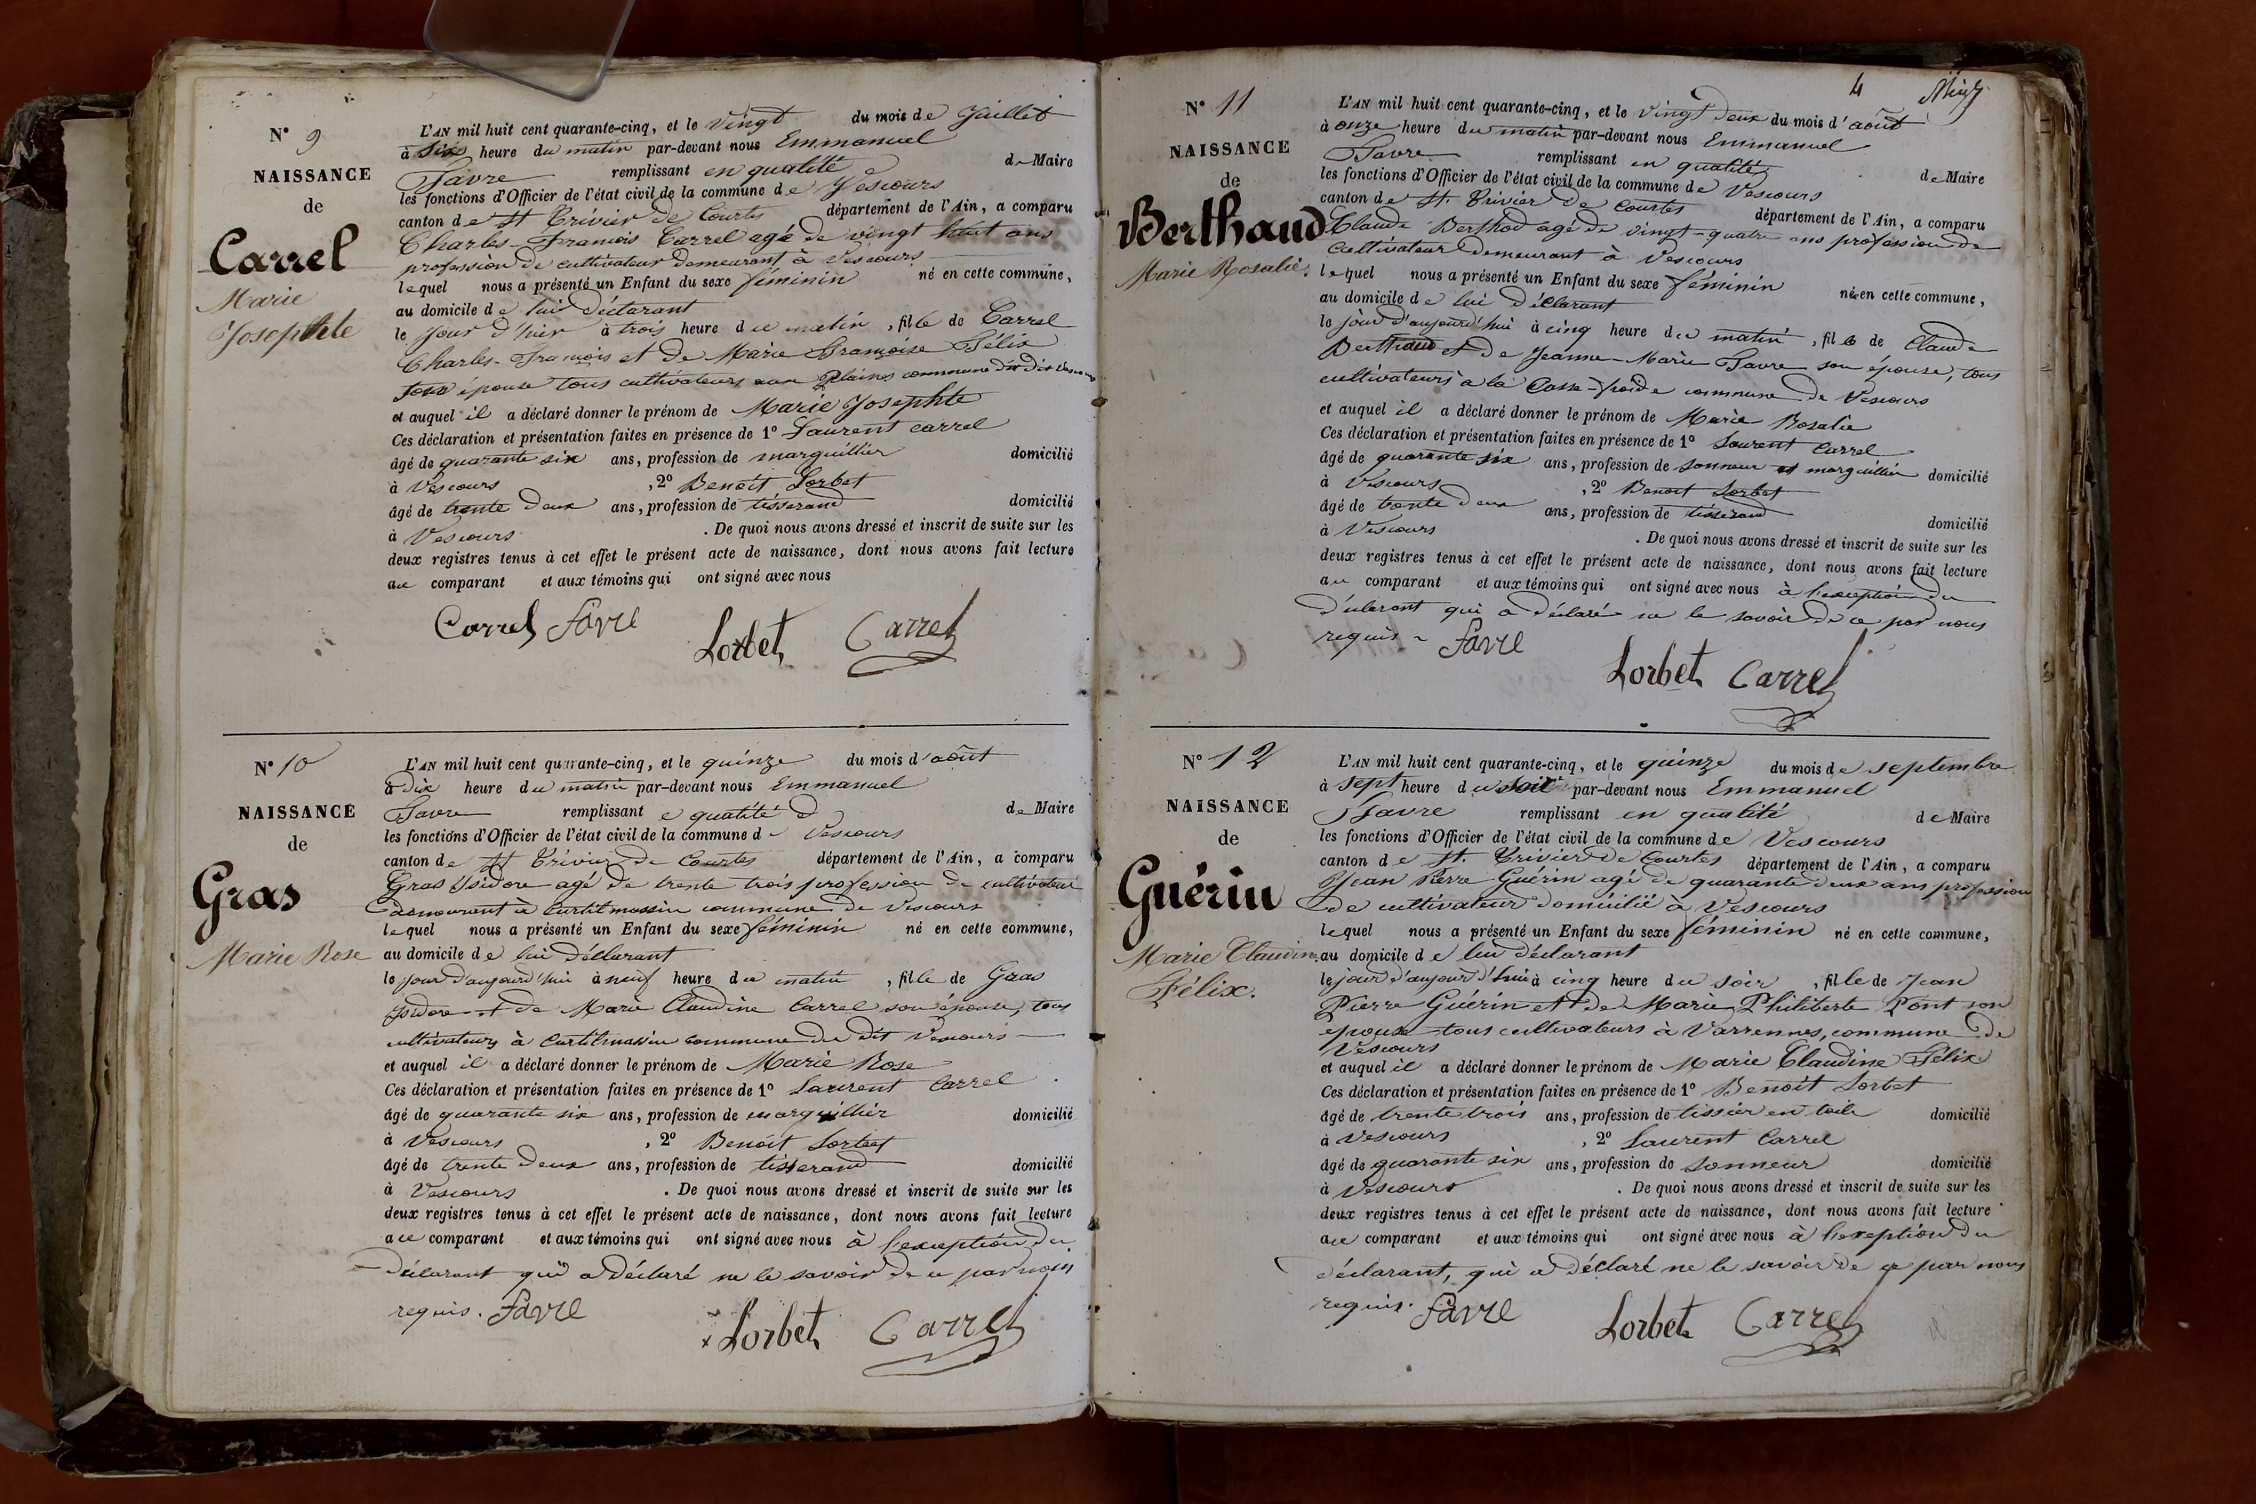 N° 9
NAISSANCE
de
Carrel
Marie
Josephte
L'AN mil huit cent quarante-cinq, et le vingt du mois de Juillet
à six heure du matin par-devant nous Emmanuel
Favre remplissant en qualité de Maire
les fonctions d'Officier de l'état civil de la commune de Vescours
canton de St Trivier de Courtes département de l'Ain, a comparu
Charles-François Carrel agé de vingt huit ans
profession de cultivateur demeurant à Vescours
lequel nous a présenté un Enfant du sexe féminin né en cette commune,
au domicile de lui déclarant
le jour d'hier à trois heure du matin, fille de Carrel
Charles-François et de Marie Françoise Félix
son épouse tous cultivateurs aux Plaines commune du dit Vescours
et auquel il a déclaré donner le prénom de Marie Josephte
Ces déclaration et présentation faites en présence de 1° Laurent Carrel
âgé de quarante six ans, profession de marguillier domicilié
à Vescours, 2° Benoit Lorbet
âgé de trente deux ans, profession de tisserand domicilié
à Vescours. De quoi nous avons dressé et inscrit de suite sur les
deux registres tenus à cet effet le présent acte de naissance, dont nous avons fait lecture
au comparant et aux témoins qui ont signé avec nous
Carrel Favre Lorbet Carrel
N° 10
NAISSANCE
de
Gras
Marie Rose
L'AN mil huit cent quarante-cinq, et le quinze du mois d'août
à dix heure du matin par-devant nous Emmanuel
Favre remplissant e qualité de Maire
les fonctions d'Officier de l'état civil de la commune de Vescours
canton de St Trivier de Courtes département de l'Ain, a comparu
Gras Isidore agé de trente trois profession de cultivateur
demeurant à Curtilmassin commune de Vescours
lequel nous a présenté un Enfant du sexe féminin né en cette commune,
au domicile de lui déclarant
le jour d'aujourd'hui à neuf heure du matin, fille de Gras
Isidore et de Marie Claudine Carrel son épouse, tous
cultivateurs à Curtilmassin commune du dit Vescours
et auquel il a déclaré donner le prénom de Marie Rose
Ces déclaration et présentation faites en présence de 1° Laurent Carrel
âgé de quarante six ans, profession de marguillier domicilié
à Vescours, 2° Benoit Lorbet
âgé de trente deux ans, profession de tisserand domicilié
à Vescours. De quoi nous avons dressé et inscrit de suite sur les
deux registres tenus à cet effet le présent acte de naissance, dont nous avons fait lecture
au comparant et aux témoins qui ont signé avec nous à l'exception du
déclarant qui a déclaré ne le savoir de ce par nous
requis. Favre Lorbet Carrel
4
N° 11
NAISSANCE
de
Berthaud
Marie Rosalie.
L'AN mil huit cent quarante-cinq, et le vingt deux du mois d'août
à onze heure du matin par-devant nous Emmanuel
Favre remplissant en qualité de Maire
les fonctions d'Officier de l'état civil de la commune de Vescours
canton de St. Trivier de Courtes département de l'Ain, a comparu
Claude Berthod agé de vingt-quatre ans profession de
cultivateur demeurant à Vescours
lequel nous a présenté un Enfant du sexe féminin née en cette commune,
au domicile de lui déclarant
le jour d'aujourd'hui à cinq heure du matin, fille de Claude
Berthaud et de Jeanne-Marie Favre son épouse, tous
cultivateurs à la Casse-froide commune de Vescours
et auquel il a déclaré donner le prénom de Marie Rosalie
Ces déclaration et présentation faites en présence de 1° Laurent Carrel
âgé de quarante six ans, profession de sonneur et marguillier domicilié
à Vescours, 2° Benoit Lorbet
âgé de trente deux ans, profession de tisserand domicilié
à Vescours. De quoi nous avons dressé et inscrit de suite sur les
deux registres tenus à cet effet le présent acte de naissance, dont nous avons fait lecture
au comparant et aux témoins qui ont signé avec nous à l'exception du
déclarant qui a déclaré ne le savoir de ce par nous
requis. Favre Lorbet Carrel
N° 12
NAISSANCE
de
Guérin
Marie Claudine
Félix.
L'AN mil huit cent quarante-cinq, et le quinze du mois de septembre
à sept heure du soir par-devant nous Emmanuel
Favre remplissant en qualité de Maire
les fonctions d'Officier de l'état civil de la commune de Vescours
canton de St. Trivier de Courtes département de l'Ain, a comparu
Jean Pierre Guérin agé de quarante deux ans profession
de cultivateur domicilié à Vescours
lequel nous a présenté un Enfant du sexe féminin né en cette commune,
au domicile de lui déclarant
le jour d'aujourd'hui à cinq heure du soir, fille de Jean
Pierre Guérin et de Marie Philiberte Pont son
épouse tous cultivateurs à Varrennes, commune de
Vescours
et auquel il a déclaré donner le prénom de Marie Claudine Félix
Ces déclaration et présentation faites en présence de 1° Benoit Lorbet
âgé de trente trois ans, profession de tissier en toile domicilié
à Vescours, 2° Laurent Carrel
âgé de quarante six ans, profession de sonneur domicilié
à Vescours. De quoi nous avons dressé et inscrit de suite sur les
deux registres tenus à cet effet le présent acte de naissance, dont nous avons fait lecture
au comparant et aux témoins qui ont signé avec nous à l'exception du
déclarant, qui a déclaré ne le savoir de ce par nous
requis. Favre Lorbet Carrel